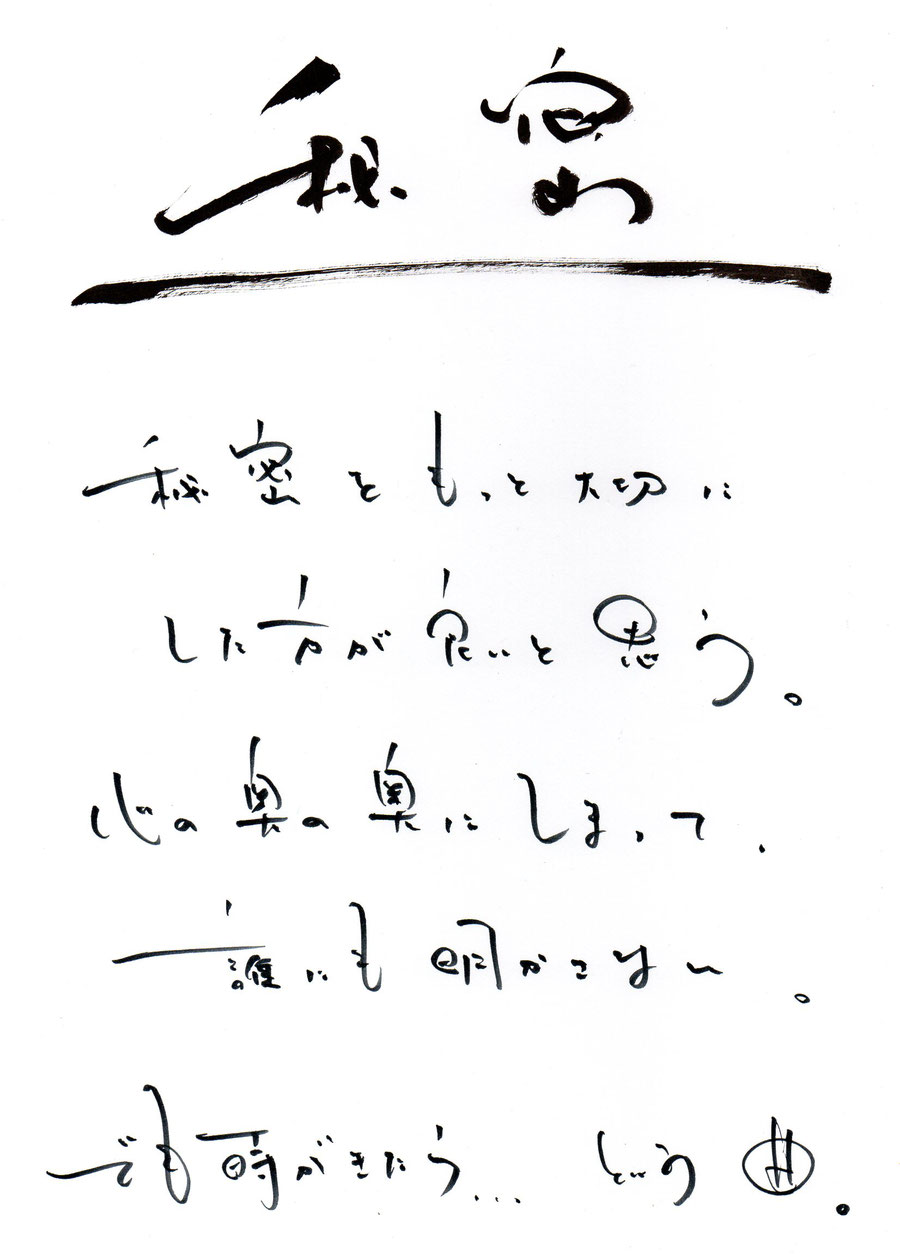 秘密
秘密をもっと大切に
した方が良いと思う。
心の奥の奥にしまって、
誰にも明かさない。
でも時がきたら... という